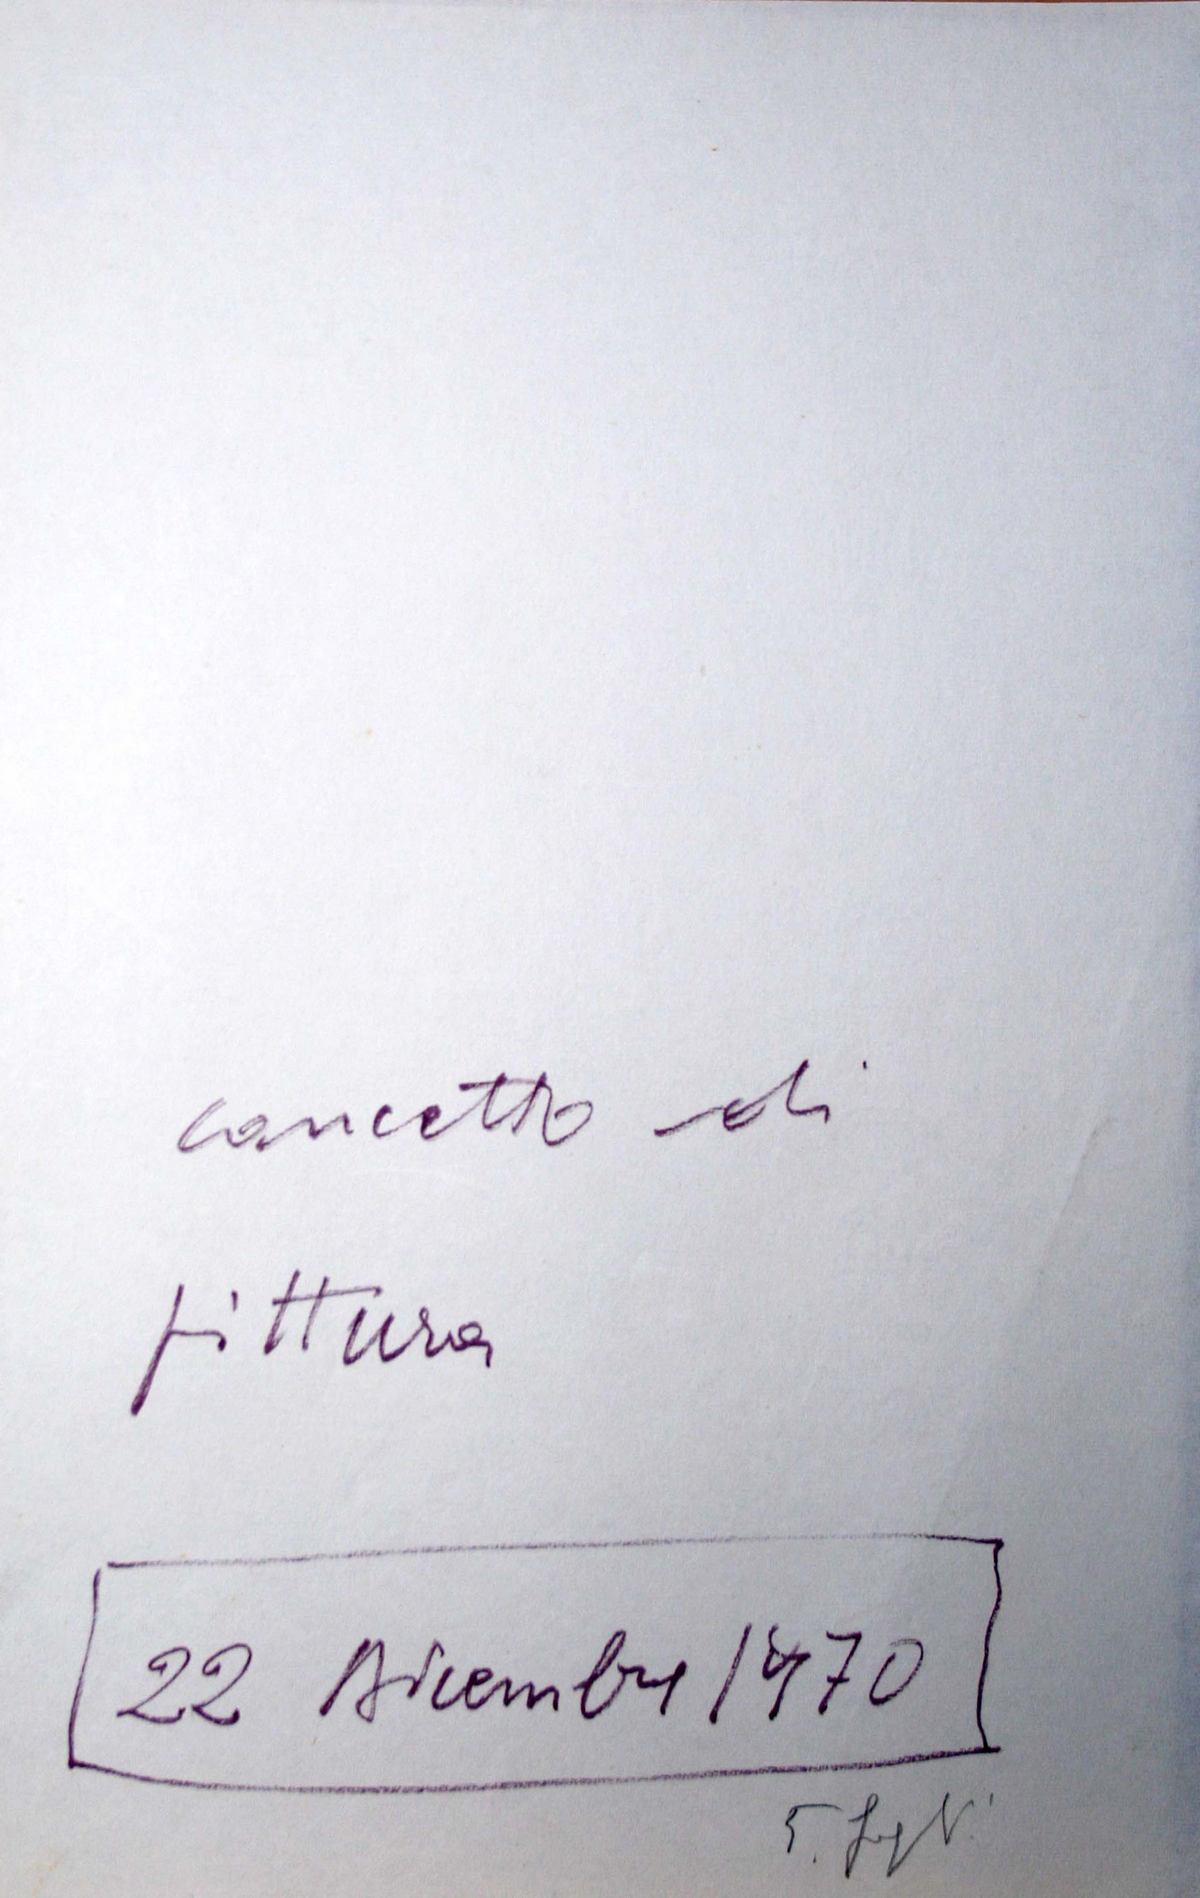 concetto di
pittura
22 Dicembre 1970